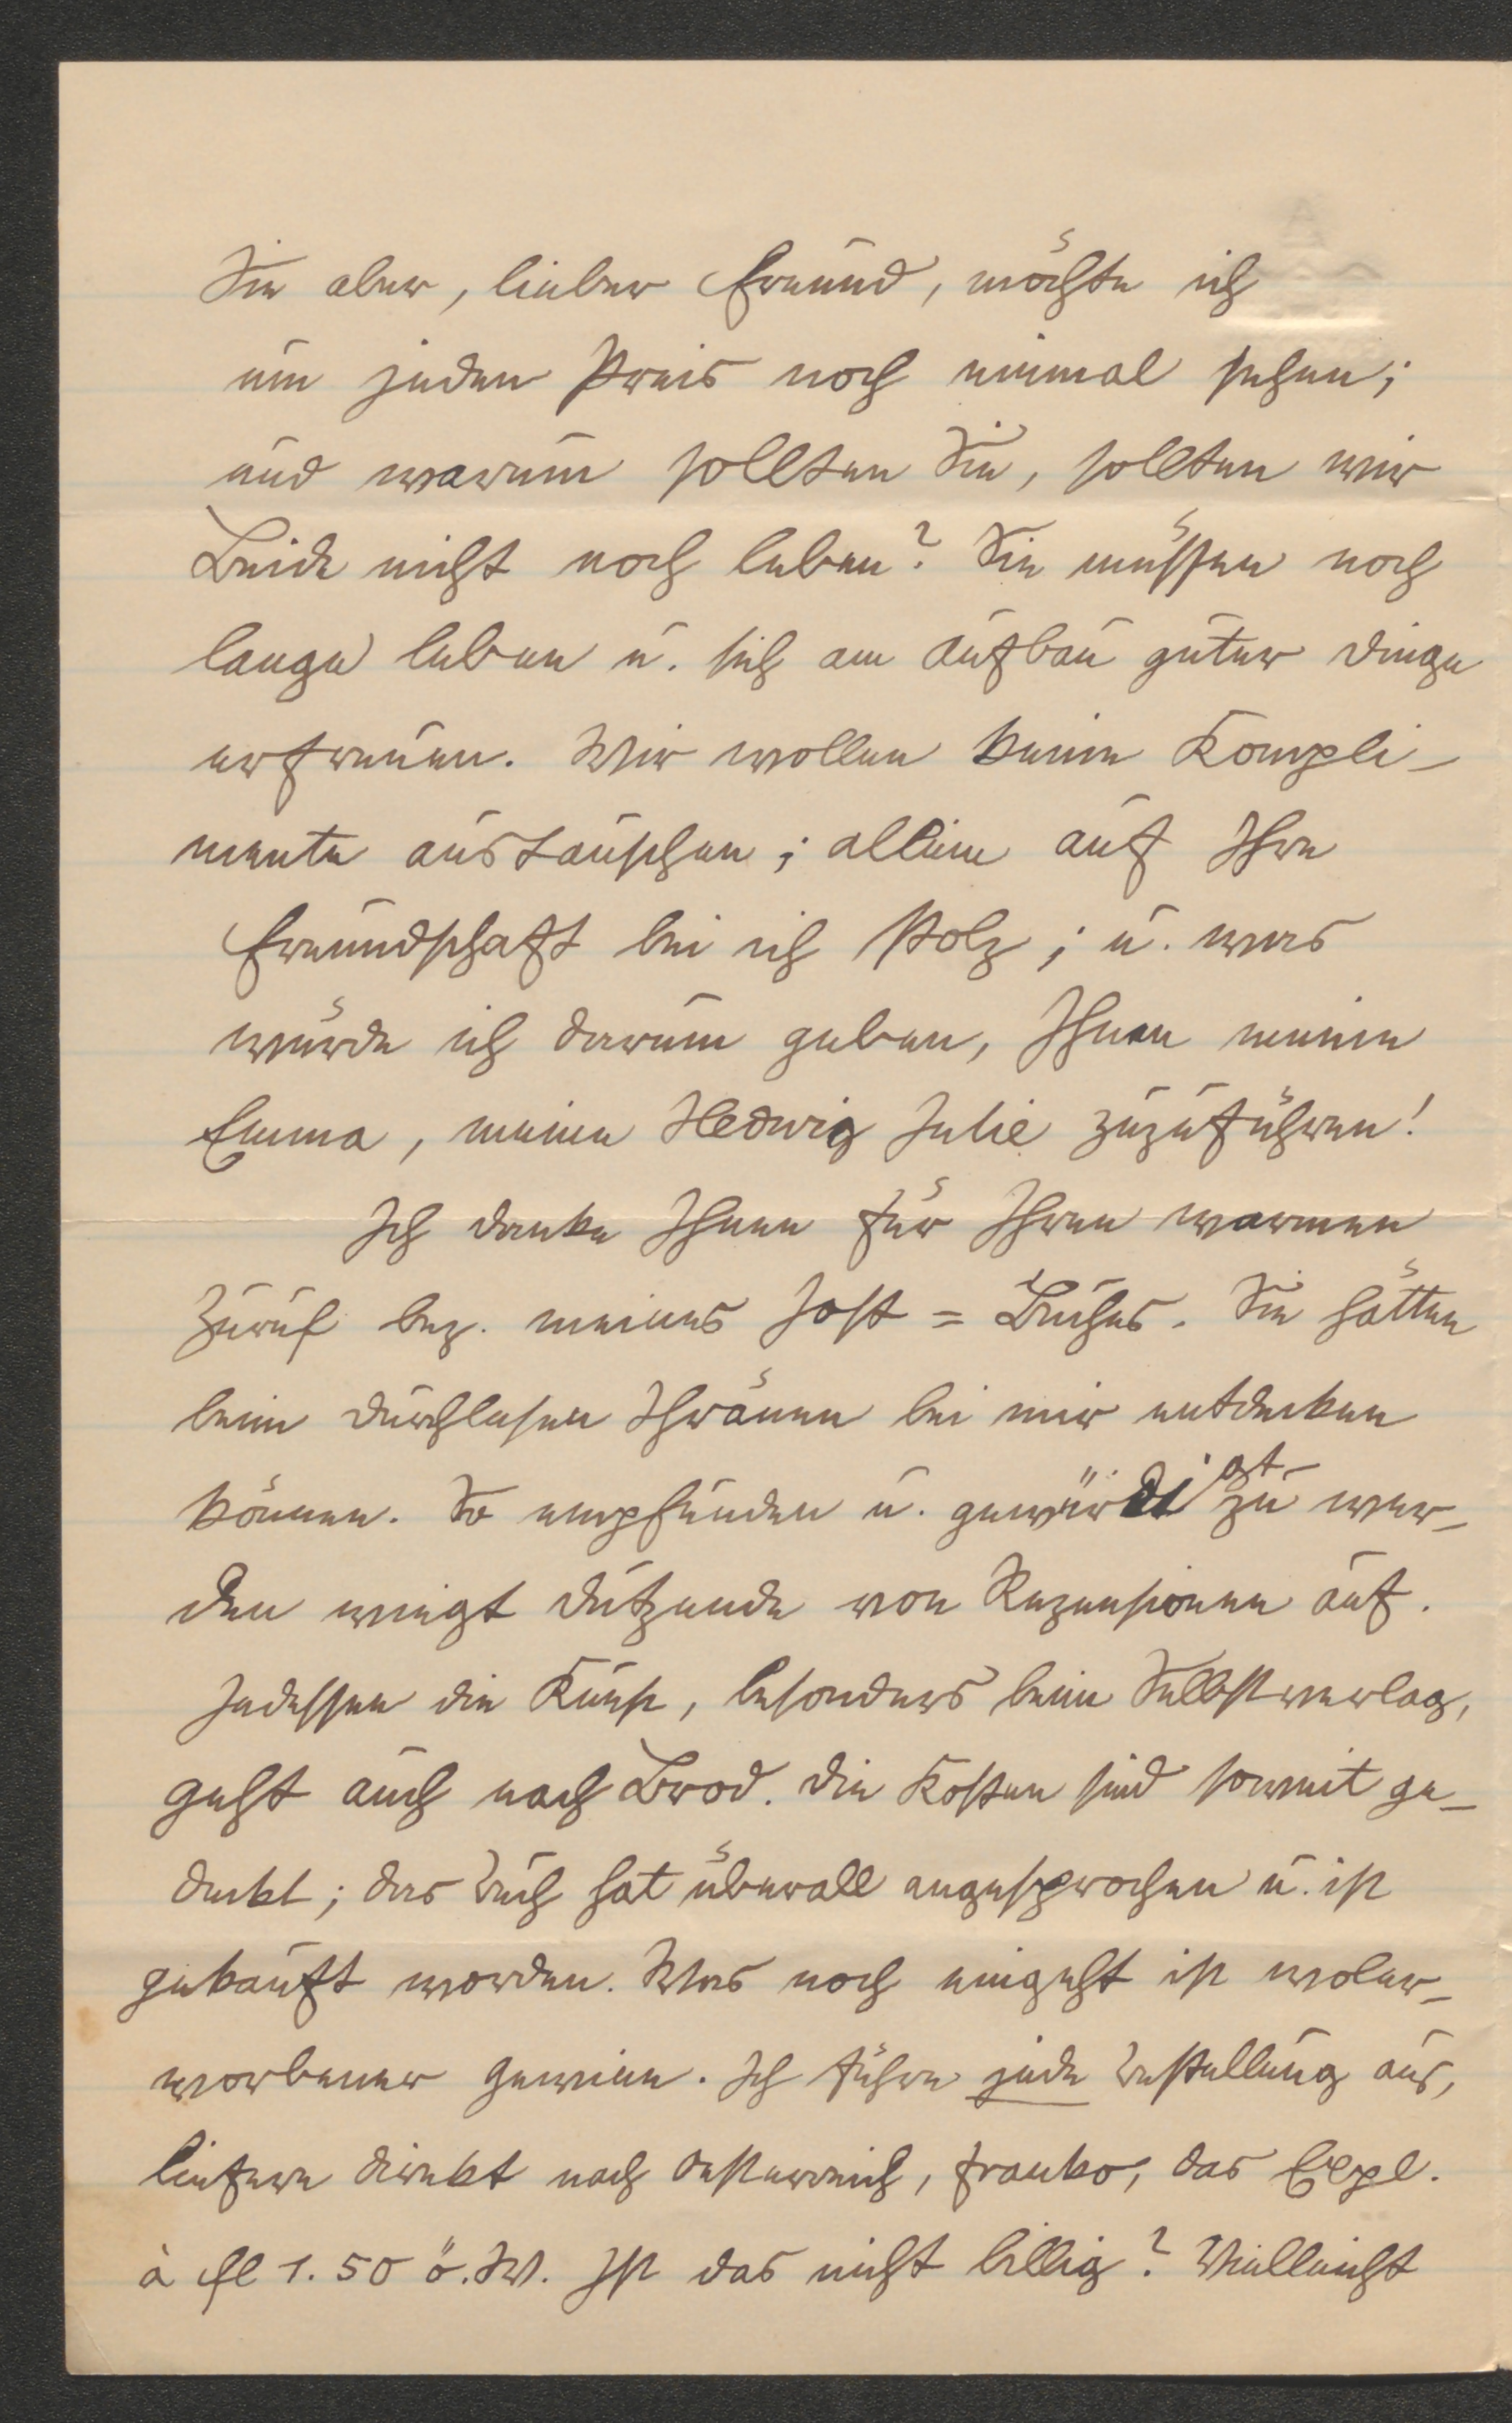 Sie aber, lieber Freund, möchte ich
um jeden Preis noch einmal sehen;
und warum sollten Sie, sollten wir
Beide nicht noch leben? Sie müssen noch
lange leben u. sich am Aufbau guter Dinge
erfreuen. Wir wollen keine Kompli-
mente austauschen; allein auf Ihre
Freundschaft bin ich stolz; u. was
würde ich darum geben, Ihnen meine
Emma, meine Hedwig Julie zuzuführen!
Ich danke Ihnen für Ihren warmen
Zuruf bez. meines Jost=Buches. Sie hätten
beim Durchlesen Thränen bei mir entdecken
können. So empfunden u. gewürdigt zu wer-
den wiegt Dutzende von Rezensionen auf.
Indessen die Kunst, besonders beim Selbstverlag,
geht auch nach Brod. Die Kosten sind soweit ge-
deckt; das Buch hat überall angesprochen u. ist
gekauft worden. Was noch eingeht ist woler-
worbener Gewinn. Ich führe jede Bestellung aus,
liefere direkt nach Oesterreich, franko, das Expl.
à fl 1.50 ö.W. Ist das nicht billig? Vielleicht